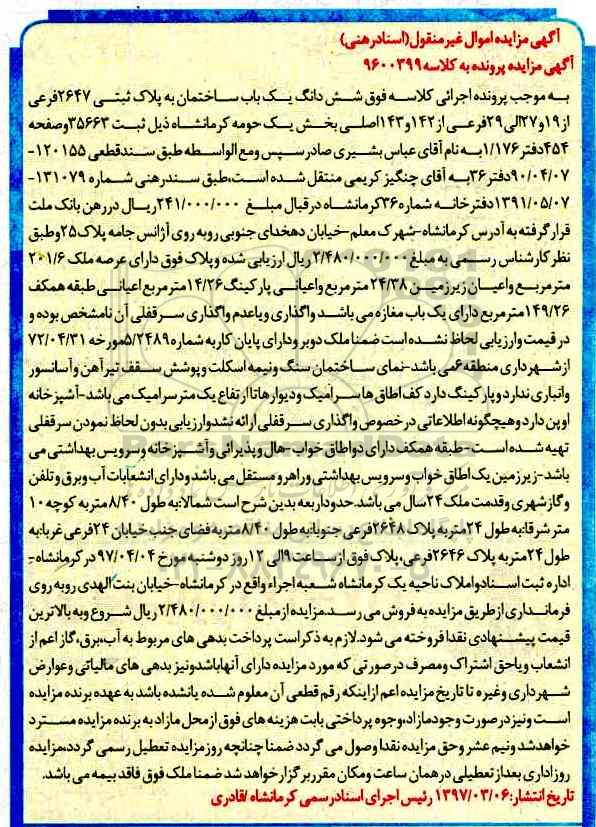 آگهی مزایده اموال غیر منقول (اسناد رهنی)
آگهی مزایده پرونده به کلاسه ۹۶۰۰۳۹۹
به موجب پرونده اجرائی کلاسه فوق شش دانگ یک باب ساختمان به پلاک ثبتی ۲۶۴۷فرعی
از۱۹و۲۷الی۲۹فرعی از۱۴۲و۱۴۳اصلی بخش یک حومه کرمانشاه ذیل ثبت ۳۵۶۶۳وصفحه
۴۵۴دفتر۱/۱۷۶به نام آقای عباس بشیری صادر سپس ومع الواسطه طبق سندقطعی ۱۲۰۱۵۵-
۹۰/۰۴/۰۷دفتر۳۶به آقای چنگیز کریمی منتقل شده است،طبق سندرهنی شماره ۱۳۱۰۷۹-
۱۳۹۱/۰۵/۰۷دفترخانه شماره۳۶کرمانشاه در قبال مبلغ ۲۴۱/۰۰۰/۰۰۰ریال دررهن بانک ملت
قرار گرفته به آدرس کرمانشاه-شهرک معلم-خیابان دهخدای جنوبی روبه روی آژانس جامه پلاک۲۵وطبق
نظر کارشناس رسمی به مبلغ ۲/۴۸۰/۰۰۰/۰۰۰ ریال ارزیابی شده وپلاک فوق دارای عرصه ملک ۲۰۱/۶
مترمربع واعیان زیرزمین ۲۴/۳۸مترمربع واعیانی پارکینگ ۱۴/۲۶مترمربع اعیانی طبقه همکف
۱۴۹/۲۶مترمربع دارای یک باب مغازه می باشد.واگذاری ویاعدم واگذاری سرقفلی آن نامشخص بوده و
در قیمت وارزیابی لحاظ نشده است ضمناملک دوبر ودارای پایان کاربه شماره۵/۲۴۸۹مورخه ۷۲/۰۴/۳۱
از شهرداری منطقه۶می باشد-نمای ساختمان سنگ ونیمه اسکلت وپوشش سقف تیرآهن وآسانسور
وانباری نداردوپارکینگ دارد کف اطاق ها سرامیک ودیوارهاتاارتفاع یک متر سرامیک می باشد-آشپزخانه
اوپن داردوهیچگونه اطلاعاتی در خصوص واگذاری سرقفلی ارائه نشدوارزیابی بدون لحاظ نمودن سرقفلی
تهیه شده است-طبقه همکف دارای دواطاق خواب-هال وپذیرائی وآشپزخانه وسرویس بهداشتی می
باشد-زیرزمین یک اطاق خواب وسرویس بهداشتی وراهرو مستقل می باشد ودارای انشعابات آب وبرق وتلفن
وگازشهری وقدمت ملک ۲۴سال می باشد.حدود اربعه بدین شرح است شمالا:به طول ۸/۴۰متربه کوچه۱۰
متر شرقا:به طول ۲۴متربه پلاک ۲۶۴۸فرعی جنوبا:به طول ۸/۴۰متربه فضای جنب خیابان ۲۴فرعی غربا:به
طول ۲۴متربه پلاک ۲۶۴۶فرعی،پلاک فوق از ساعت ۹الی ۱۲ روز دوشنبه مورخ ۹۷/۰۴/۰۴در کرمانشاه-
اداره ثبت اسنادواملاک ناحیه یک کرمانشاه شعبه اجراء واقع در کرمانشاه-خیابان بنت الهدی روبه روی
فرمانداری از طریق مزایده به فروش می رسد.مزایده از مبلغ ۲/۴۸۰/۰۰۰/۰۰۰ ریال شروع وبه بالاترین
قیمت پیشنهادی نقدا فروخته می شود.لازم به ذکر است پرداخت بدهی های مربوط به آب،برق،گاز اعم از
انشعاب ویاحق اشتراک ومصرف درصورتی که مورد مزایده دارای آنهاباشدونیز بدهی های مالیاتی وعوارض
شهرداری وغیره تا تاریخ مزایده اعم ازاینکه رقم قطعی آن معلوم شده یانشده باشد به عهده برنده مزایده
است ونیز در صورت وجودمازاد،وجوه پرداختی بابت هزینه های فوق از محل مازاد به برنده مزایده مسترد
خواهدشد ونیم عشر وحق مزایده نقدا وصول می گردد ضمنا چنانچه روز مزایده تعطیل رسمی گردد،مزایده
روز اداری بعد از تعطیلی در همان ساعت ومکان مقرر برگزار خواهد شد ضمنا ملک فوق فاقد بیمه می باشد.
تاریخ انتشار:۱۳۹۷/۰۳/۰۶ رئیس اجرای اسناد رسمی کرمانشاه /قادری